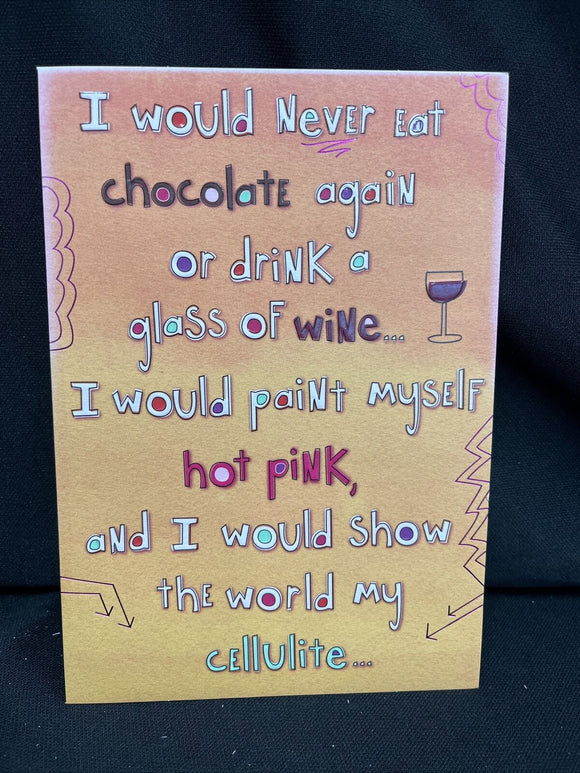 I would NEVER Eat
chocolatE again
or driNK a
glass of wiNE...
I would paiNt MysElF
hot piNK,
aNd I would show
thE world My
cEllulitE...